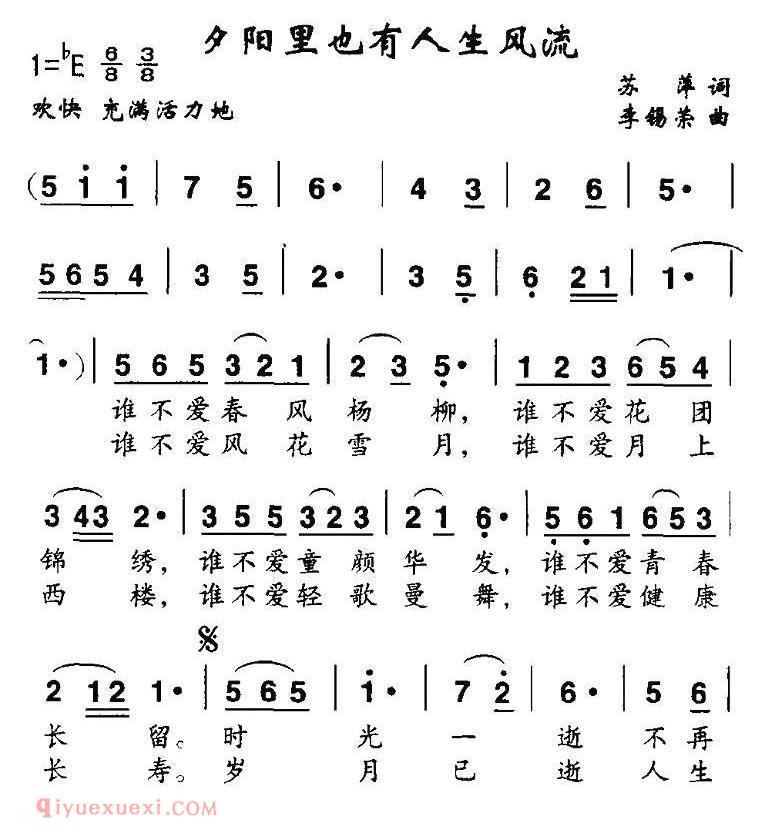 夕阳里也有人生风流
1=♭E 6/8 3/8
苏 萍 词
欢快 充满活力地
李锡荣 曲
(5 1̇ 1̇ | 7 5 | 6· | 4 3 | 2 6 | 5· |
5654 | 3 5 | 2· | 3 5̣ | 6̣ 21 | 1· |
1·) | 565 321 | 2 3 5̣· | 123 654 |
谁不爱春 风 杨 柳, 谁不爱花 团
谁不爱风 花 雪 月, 谁不爱月 上
3 43 2· | 355 323 | 2 1 6̣· | 5̣6̣1 653 |
锦 绣, 谁不爱童 颜 华 发, 谁不爱青 春
西 楼, 谁不爱轻 歌 曼 舞, 谁不爱健 康
𝄋
2 12 1· | 565 | 1̇· | 7 2̇ | 6· | 5 6 |
长 留。时 光 一 逝 不 再
长 寿。岁 月 已 逝 人 生
qiyuexuexi.com